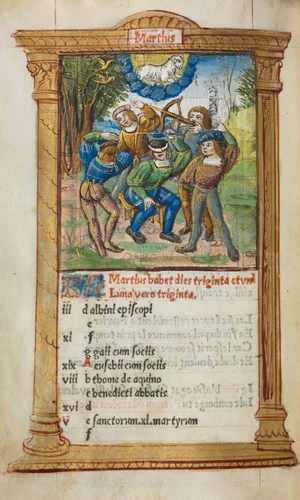 Martius
KL Martius habet dies triginta et vnũ
Luna vero triginta.
iii d albini episcopi
e
xi f
g gaii cum sociis
xix A euschii cum sociis
viii b thome de aquino
c benedicti abbatis
xvi d
v e sanctorum.xl.martyrum
f